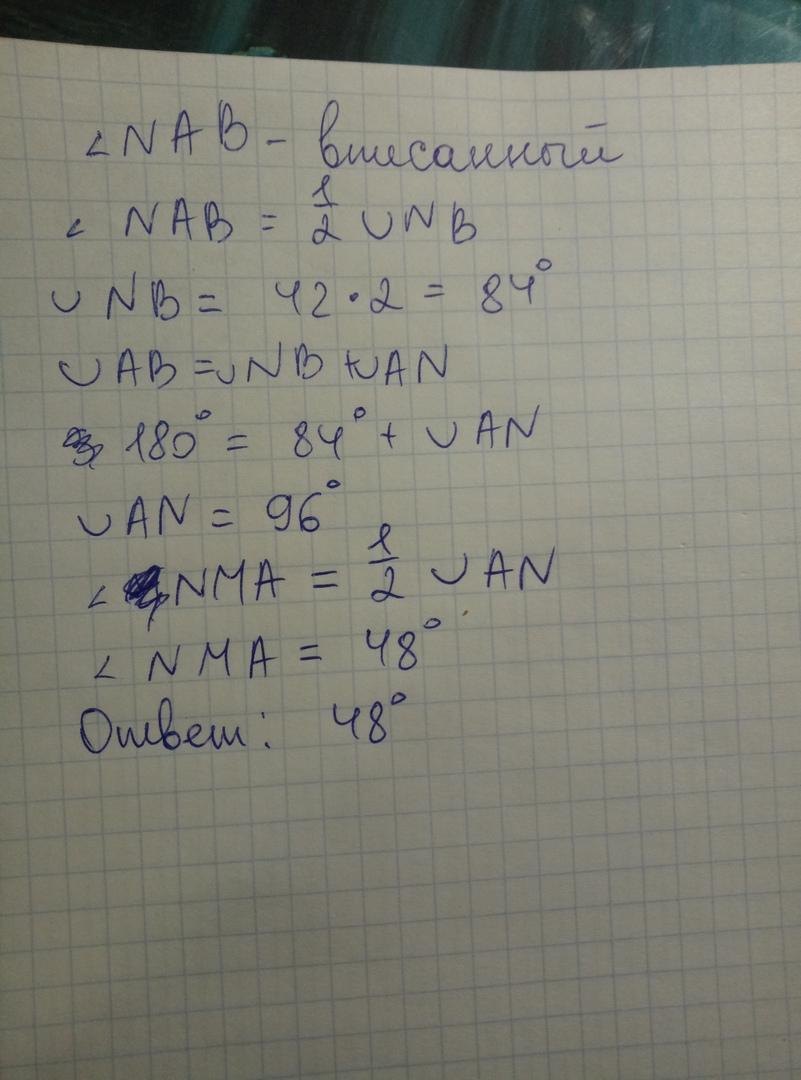 ∠NAB - вписанный
∠ NAB = 1/2 ∪NB
∪ NB = 42·2 = 84°
∪ AB = ∪NB + ∪AN
180° = 84° + ∪ AN
∪AN = 96°
∠ NMA = 1/2 ∪ AN
∠ NMA = 48°
Ответ: 48°